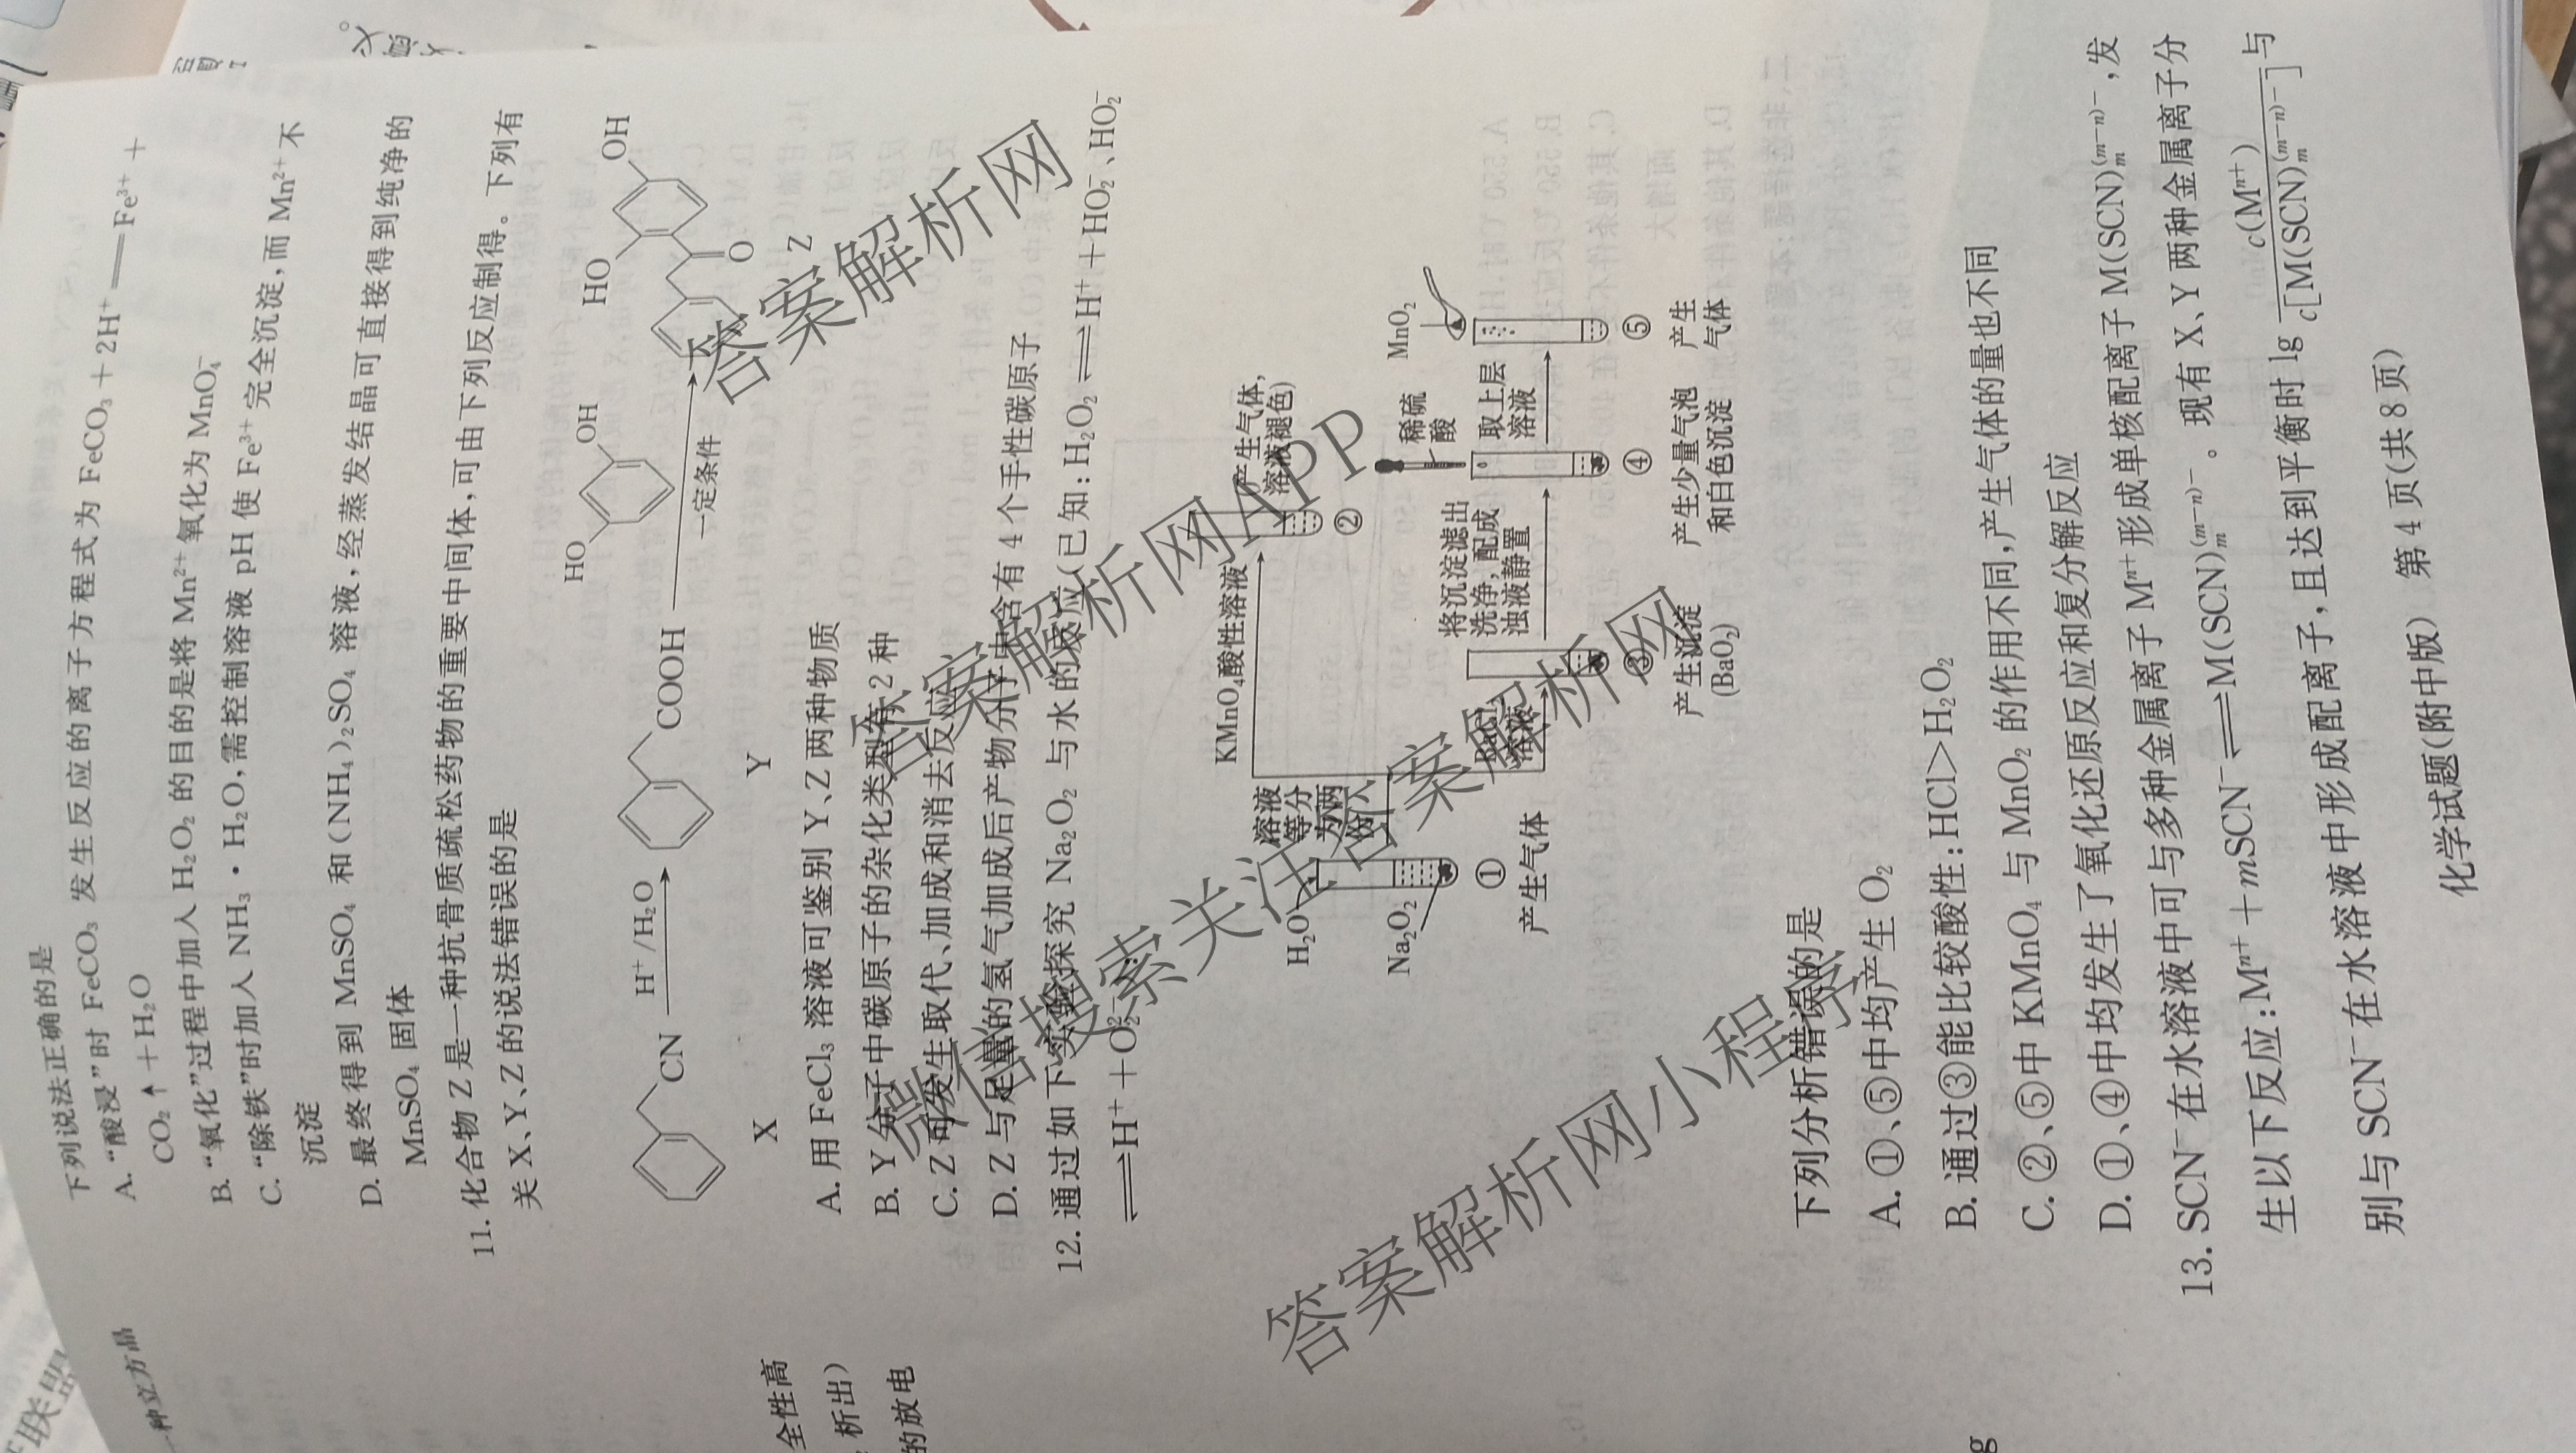 下列说法正确的是
A.“酸浸”时 FeCO₃ 发生反应的离子方程式为 FeCO₃ + 2H⁺ ═══ Fe³⁺ +
CO₂↑ + H₂O
B.“氧化”过程中加入 H₂O₂ 的目的是将 Mn²⁺ 氧化为 MnO₄⁻
C.“除铁”时加入 NH₃·H₂O,需控制溶液 pH 使 Fe³⁺ 完全沉淀,而 Mn²⁺ 不
沉淀
D. 最终得到 MnSO₄ 和 (NH₄)₂SO₄ 溶液,经蒸发结晶可直接得到纯净的
MnSO₄ 固体
11. 化合物 Z 是一种抗骨质疏松药物的重要中间体,可由下列反应制得。下列有
关 X、Y、Z 的说法错误的是
CN
X
H⁺/H₂O
COOH
Y
HO OH
一定条件
HO OH
O
Z
A. 用 FeCl₃ 溶液可鉴别 Y、Z 两种物质
B. Y 分子中碳原子的杂化类型有 2 种
C. Z 可发生取代、加成和消去反应
D. Z 与足量的氢气加成后产物分子中含有 4 个手性碳原子
12. 通过如下实验探究 Na₂O₂ 与水的反应(已知:H₂O₂ ⇌ H⁺ + HO₂⁻、HO₂⁻
⇌ H⁺ + O₂²⁻)。
H₂O
Na₂O₂
①
产生气体
溶液等分为两份
KMnO₄酸性溶液
②
(产生气体,溶液褪色)
BaCl₂溶液
③
产生沉淀(BaO₂)
将沉淀滤出洗净,配成浊液静置
稀硫酸
④
产生少量气泡和白色沉淀
取上层溶液
MnO₂
⑤
产生气体
下列分析错误的是
A. ①、⑤中均产生 O₂
B. 通过③能比较酸性:HCl>H₂O₂
C. ②、⑤中 KMnO₄ 与 MnO₂ 的作用不同,产生气体的量也不同
D. ①、④中均发生了氧化还原反应和复分解反应
13. SCN⁻ 在水溶液中可与多种金属离子 Mⁿ⁺ 形成单核配离子 M(SCN)ₘ⁽ᵐ⁻ⁿ⁾⁻,发
生以下反应:Mⁿ⁺ + mSCN⁻ ⇌ M(SCN)ₘ⁽ᵐ⁻ⁿ⁾⁻。现有 X、Y 两种金属离子分
别与 SCN⁻ 在水溶液中形成配离子,且达到平衡时 lg c(Mⁿ⁺)/c[M(SCN)ₘ⁽ᵐ⁻ⁿ⁾⁻] 与
化学试题(附中版) 第 4 页(共 8 页)
一种立方晶
全性高
析出)
的放电
答案解析网
微信搜索关注答案解析网
答案解析网APP
答案解析网小程序